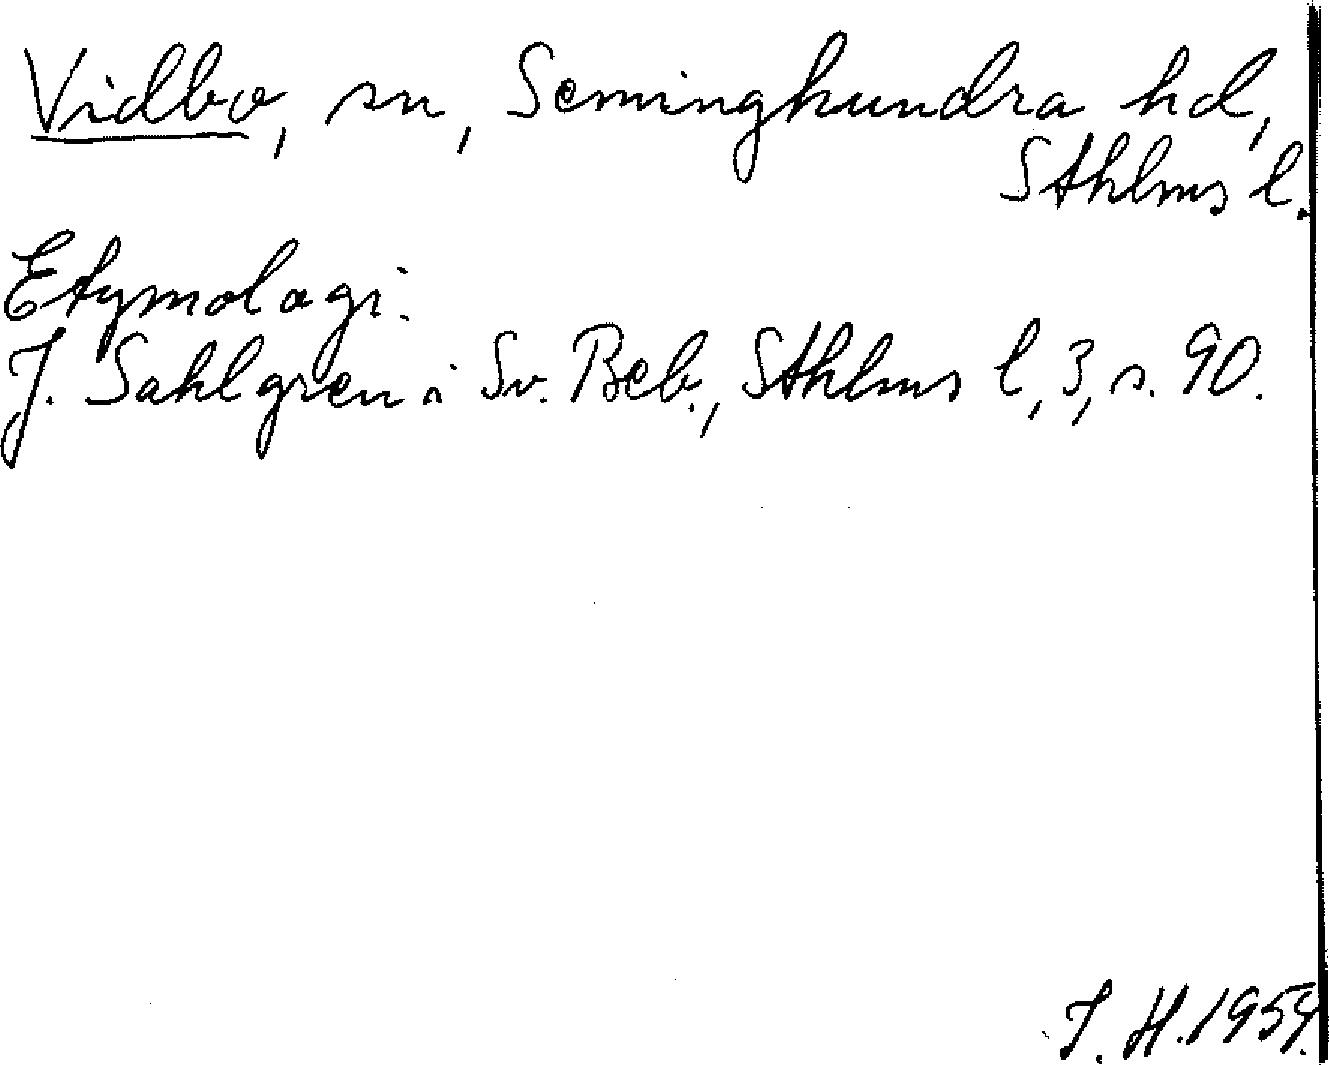 Vidbo, sn, Seminghundra hd,
Sthlms l.
Etymologi.
J. Sahlgren i Sv. Beb., Sthlms l, 3, s. 90.
J. H. 1959.